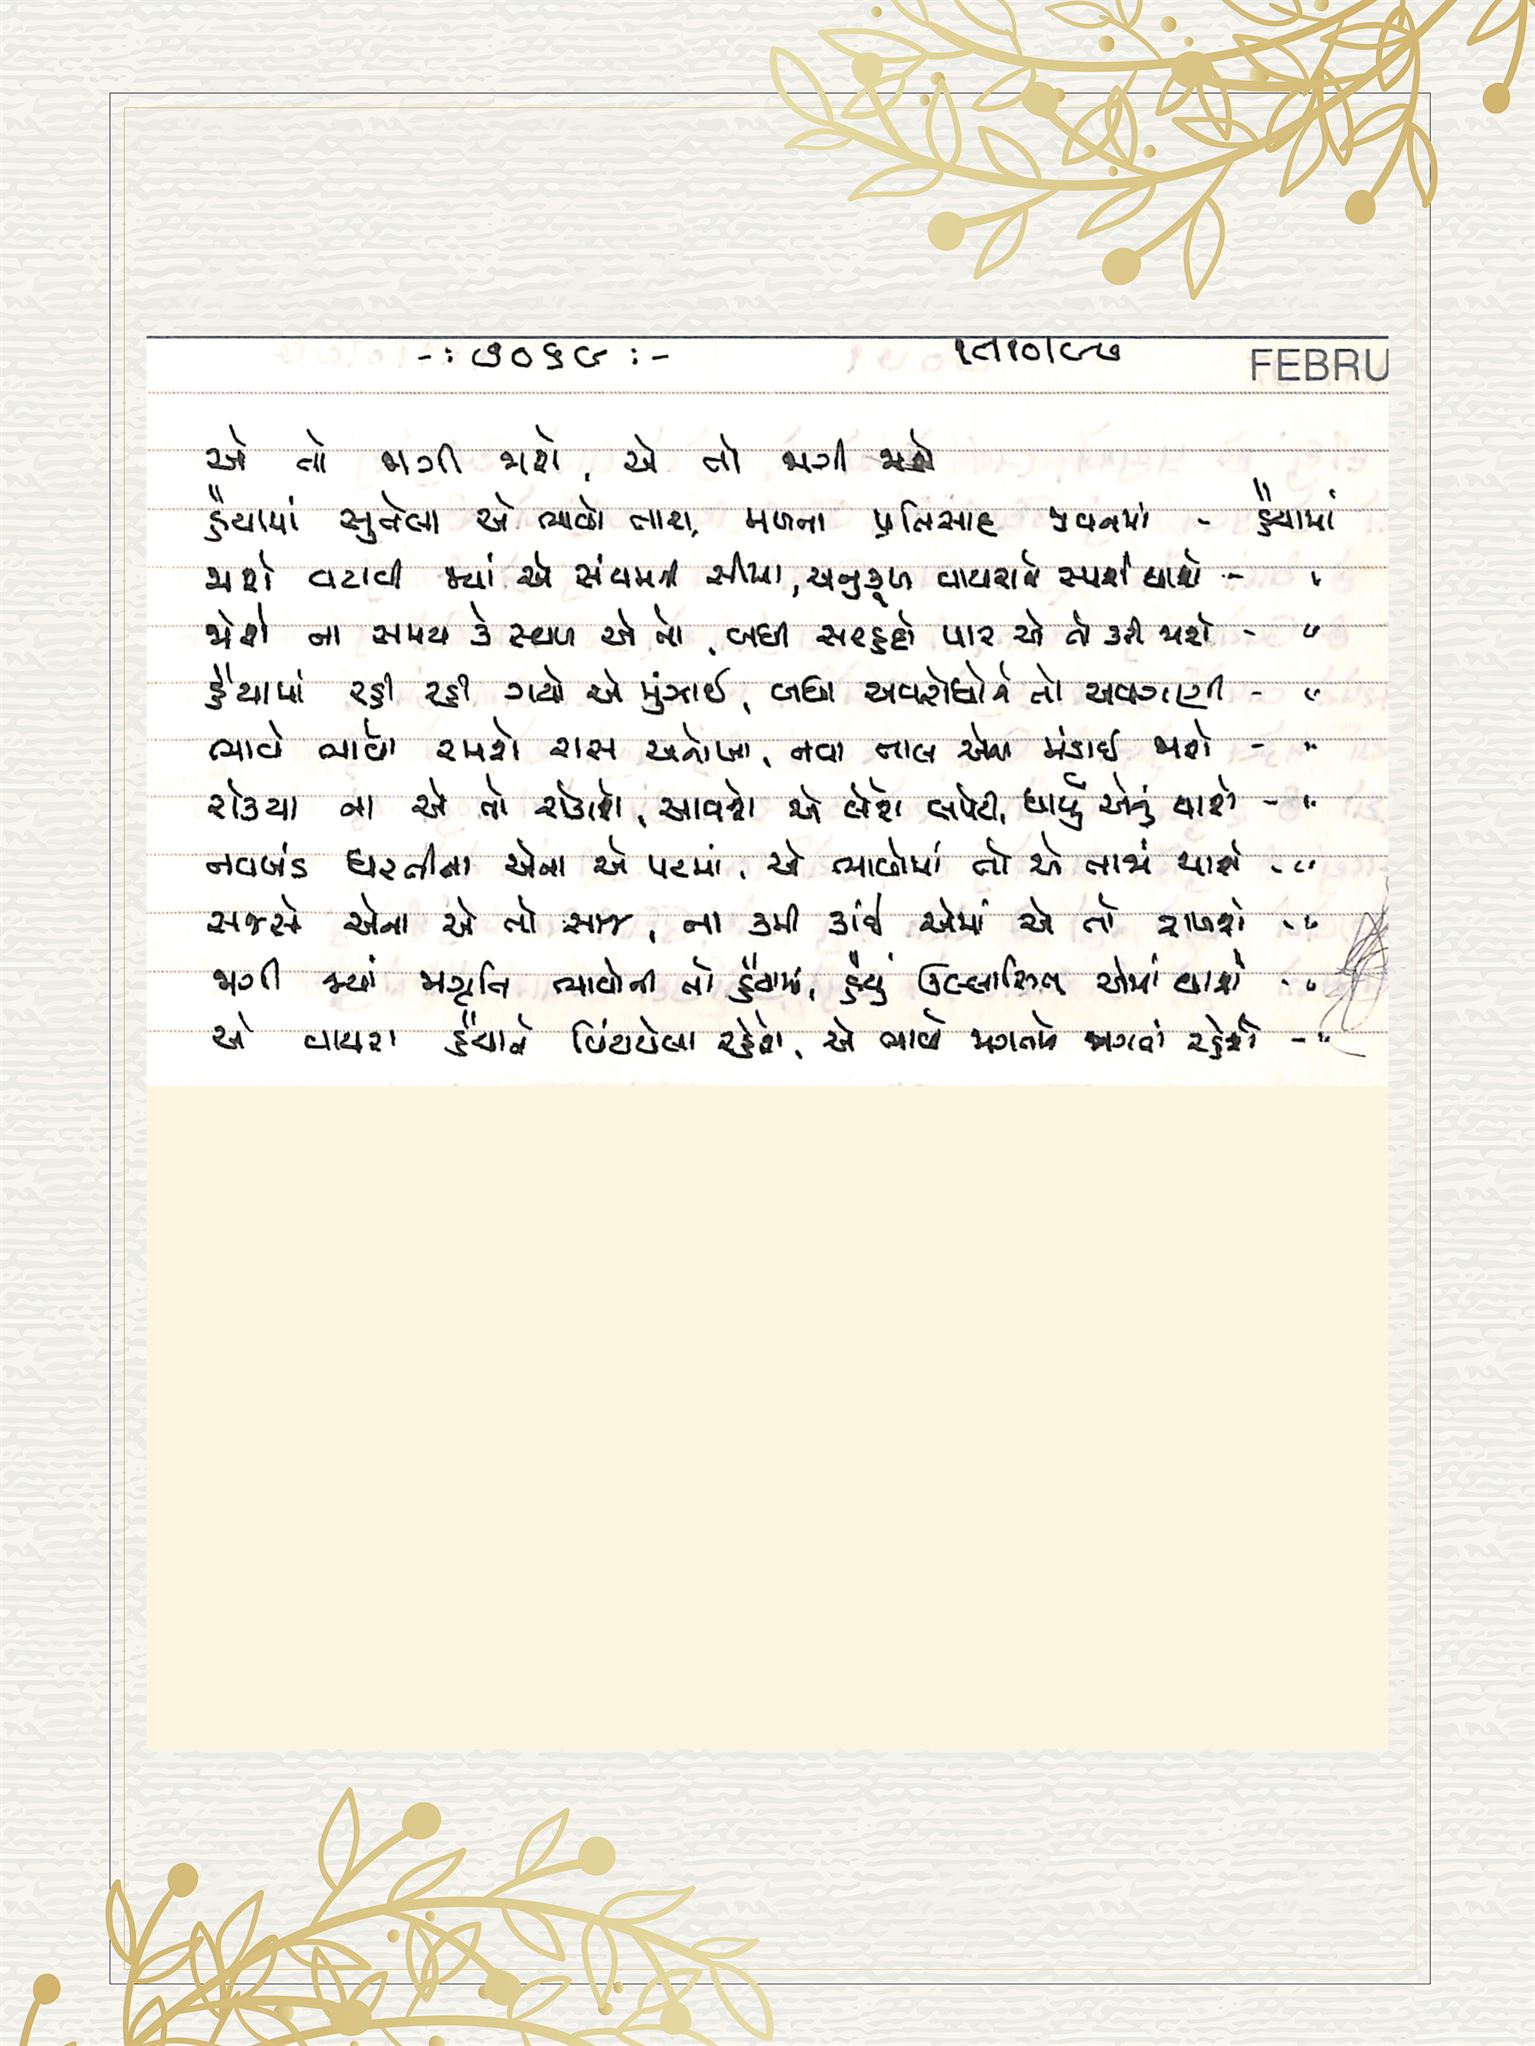 -: ૭૦૬૯ :-
૧૧૧૦।૯૭
FEBRU
એ તો જાગી જાશે, એ તો જાગી જાશે
હૈયામાં સુતેલા એ ભાવો તારા, મળતા પ્રતિસાદ જીવનમાં - હૈયામાં
જાશે વટાવી જ્યાં એ સંયમની સીમા, અનુકૂળ વાયરાને સ્પર્શી જાશે - "
જોશે ના સમય કે સ્થળ એ તો, બધી સરહદો પાર એ તો કરી જાશે - "
હૈયામાં રહી રહી ગયો એ મુંઝાઈ, બધા અવરોધોને તો અવગણી - "
ભાવે ભાવો રમશે રાસ અનોખા, નવા તાલ એના મંડાઈ જાશે - "
રોક્યા ના એ તો રોકાશે, આવશે એ લેશે લપેટી, ધાર્યું એનું થાશે - "
નવખંડ ધરતીના એના એ પટમાં, એ ભાવોમાં તો એ તાજાં થાશે - "
સજશે એના એ તો સાજ, ના કમી કાંઈ એમાં એ તો રાખશે - "
જાગી જ્યાં જાગૃતિ ભાવોની તો હૈયામાં, હૈયું ઉલ્લાસિત એમાં થાશે - "
એ વાયરા હૈયાને વિંટાયેલા રહેશે, એ ભાવો જાગતાને જાગતાં રહેશે - "